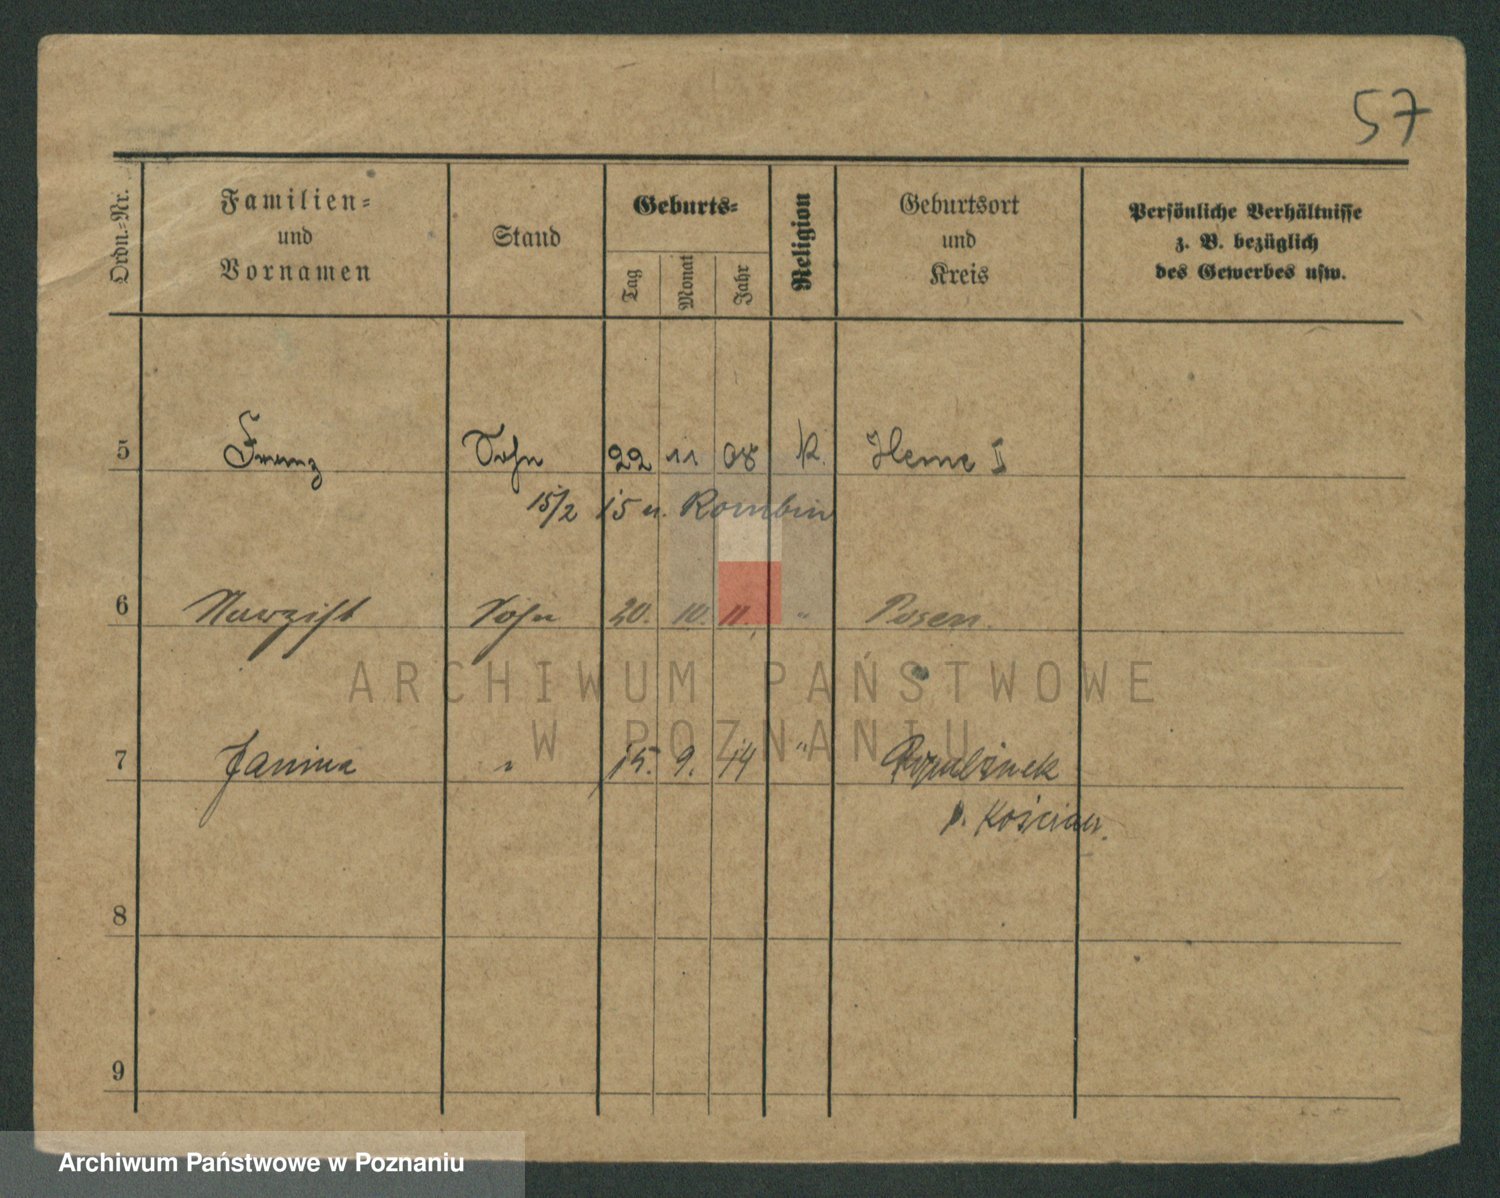 57
Ordn.-Nr.
Familien-
und
Vornamen
Stand
Geburts-
Tag
Monat
Jahr
Religion
Geburtsort
und
Kreis
Persönliche Verhältnisse
z. B. bezüglich
des Gewerbes usw.
5 Franz Sohn 22 11 08 k. Herne I
15/2 15 n. Rombin
6 Sohn 20. 10. 11. " Posen.
ARCHIWUM PAŃSTWOWE
W POZNANIU
7 Janina " 15. 9. 14 "
p. Kościan.
8
9
Archiwum Państwowe w Poznaniu